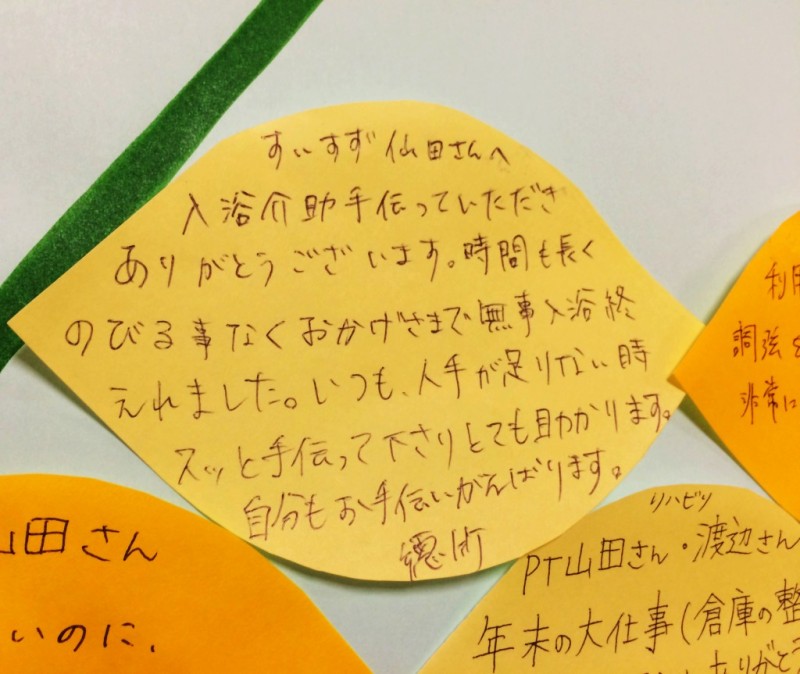 すいすず 仙田さんへ
入浴介助手伝っていただき
ありがとうございます。時間も長く
のびる事なくおかげさまで無事入浴終
えれました。いつも、人手が足りない時
スッと手伝って下さりとても助かります。
自分もお手伝いがんばります。
利用
調弦を
非常に
山田さん
いのに、
リハビリ
PT山田さん・渡辺さん
年末の大仕事(倉庫の整
ありがとう